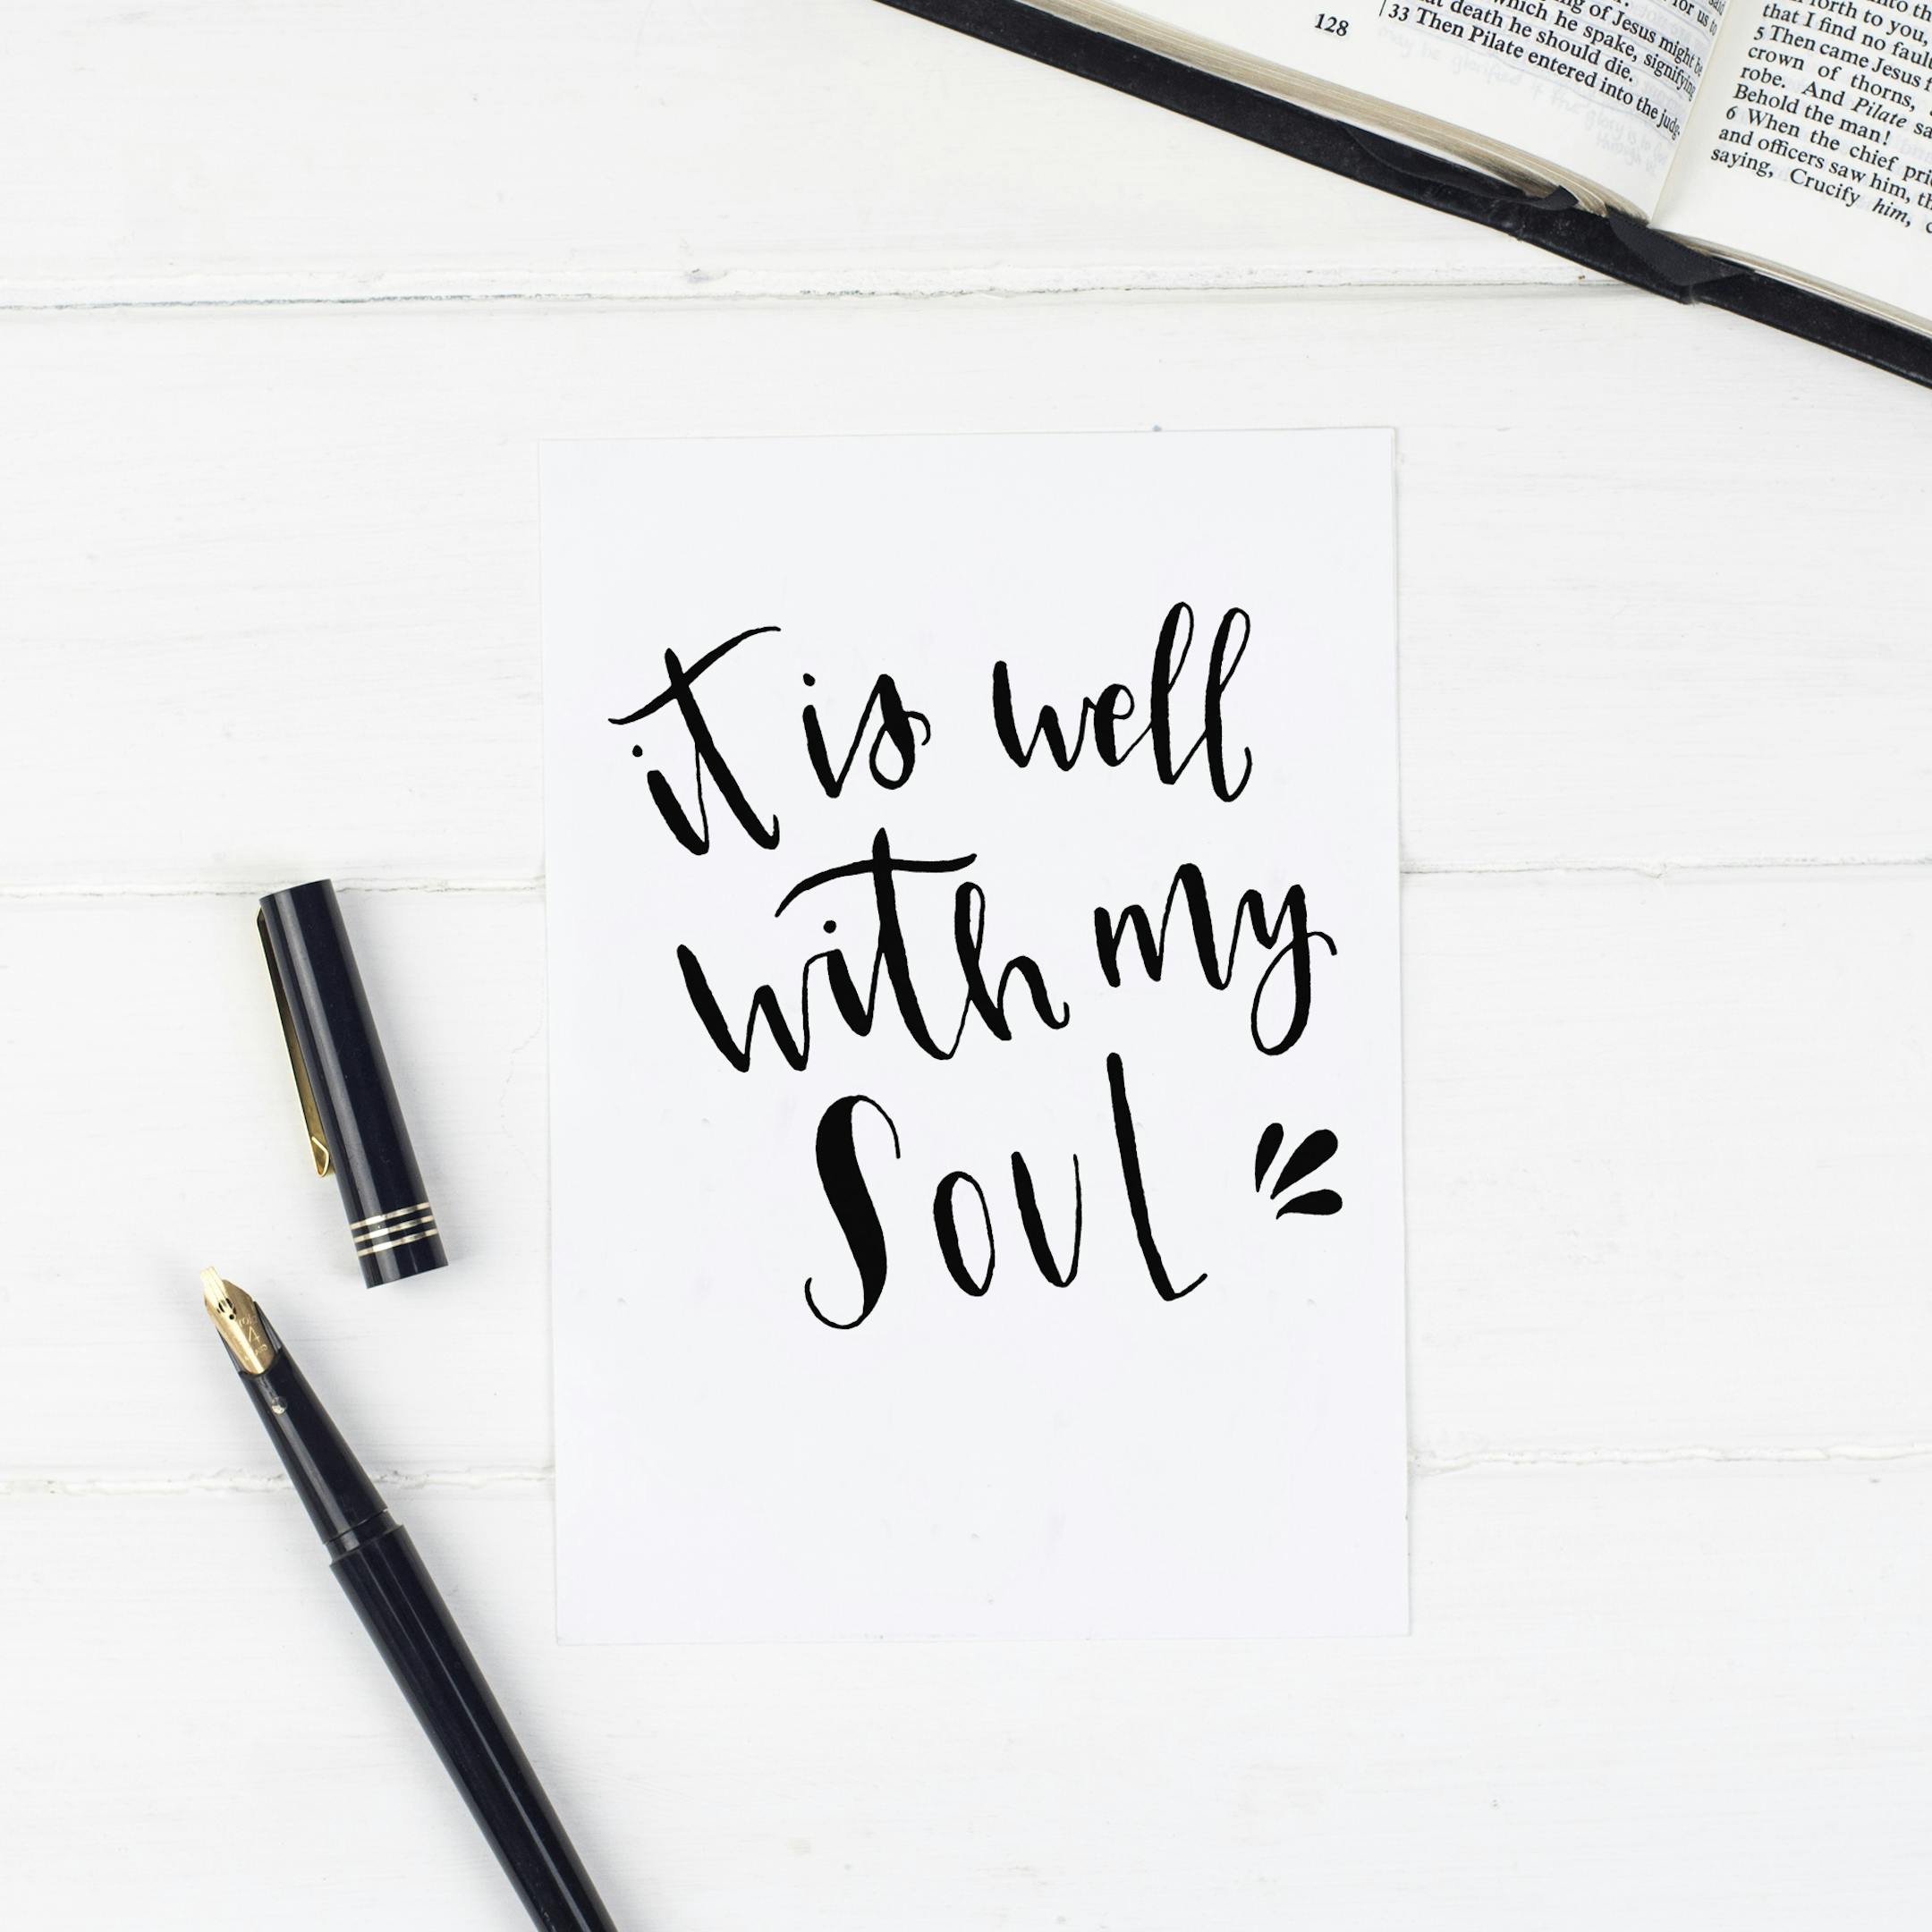 it is well
with my
Soul
128
ng of Jesus might be
which he spake, signifying
at death he should die.
33 Then Pilate entered into the judg-
forth to you,
that I find no fault
5 Then came Jesus f
crown of thorns,
robe. And Pilate sa
Behold the man!
6 When the chief pri
and officers saw him, th
saying, Crucify him, c